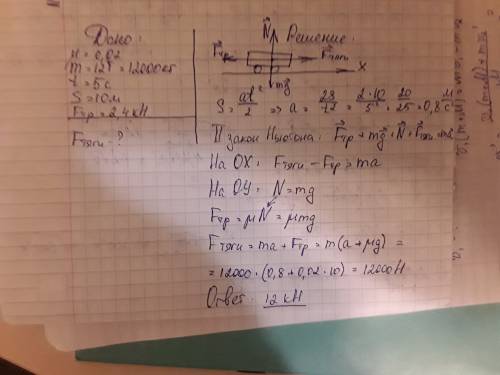 Дано:
μ = 0,02
m = 12т = 12000кг
t = 5с
S = 10м
Fтр = 2,4кН
Fтяги - ?
Решение:
N
Fтр
Fтяги
O
X
mg
S = at²/2 => a = 2S/t² = 2·10/5² = 20/25 = 0,8 м/с²
II закон Ньютона: Fтр + mg + N + Fтяги = ma
На OX: Fтяги - Fтр = ma
На OY: N = mg
Fтр = μN = μmg
Fтяги = ma + Fтр = m(a + μg) =
= 12000·(0,8 + 0,02·10) = 12000Н
Ответ: 12 кН